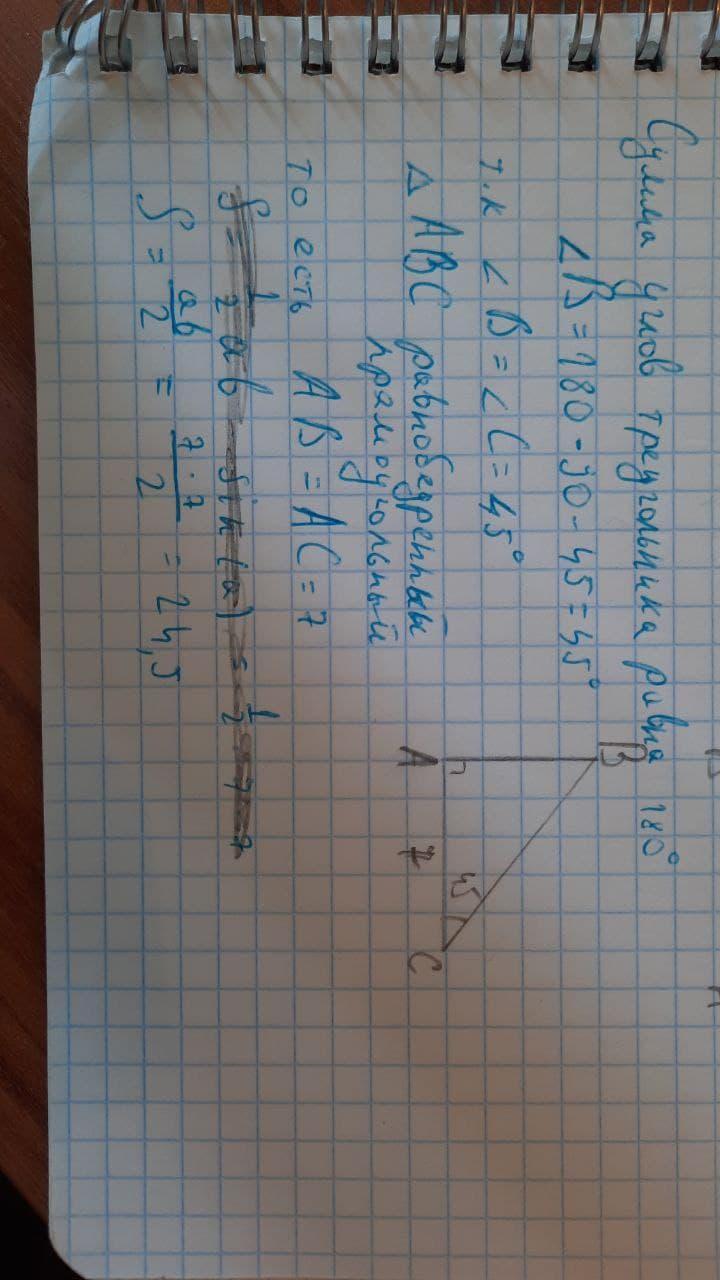 Сумма углов треугольника равна 180°
∠B = 180 - 90 - 45 = 45°
т.к ∠B = ∠C = 45°
△ABC равнобедренный
прямоугольный
то есть AB = AC = 7
S = 1/2 ab sin(a) = 1/2 · 7 · 7
S = ab/2 = 7·7/2 = 24,5
B
A
7
45
C